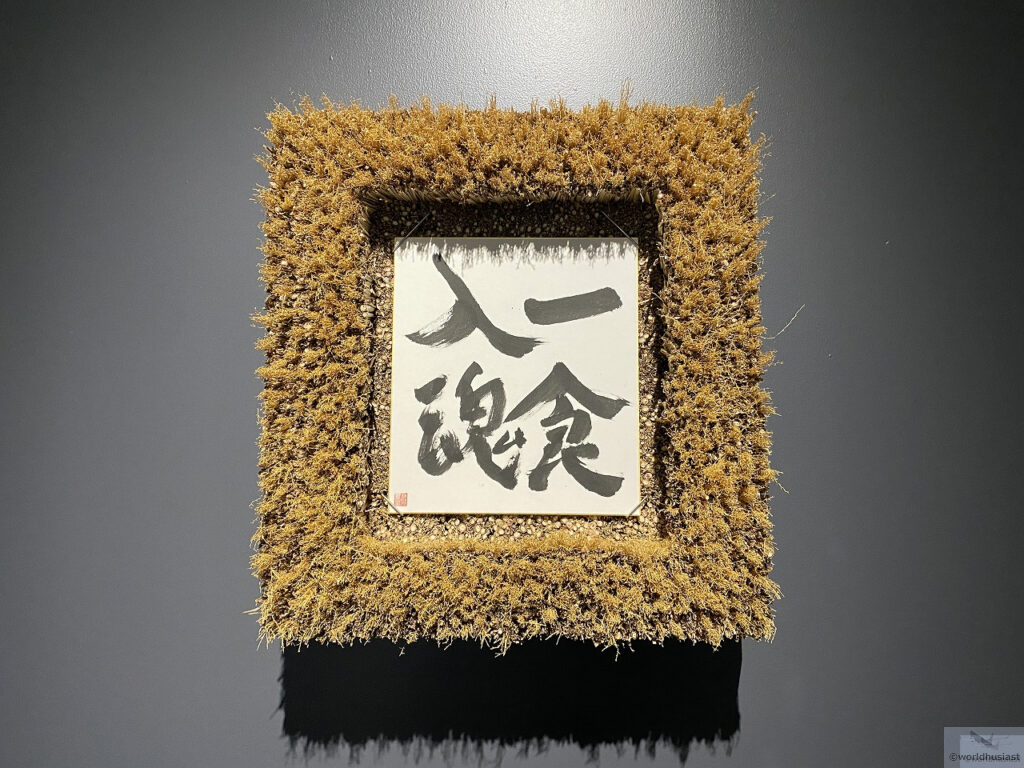 一食
入魂
©worldhusiast